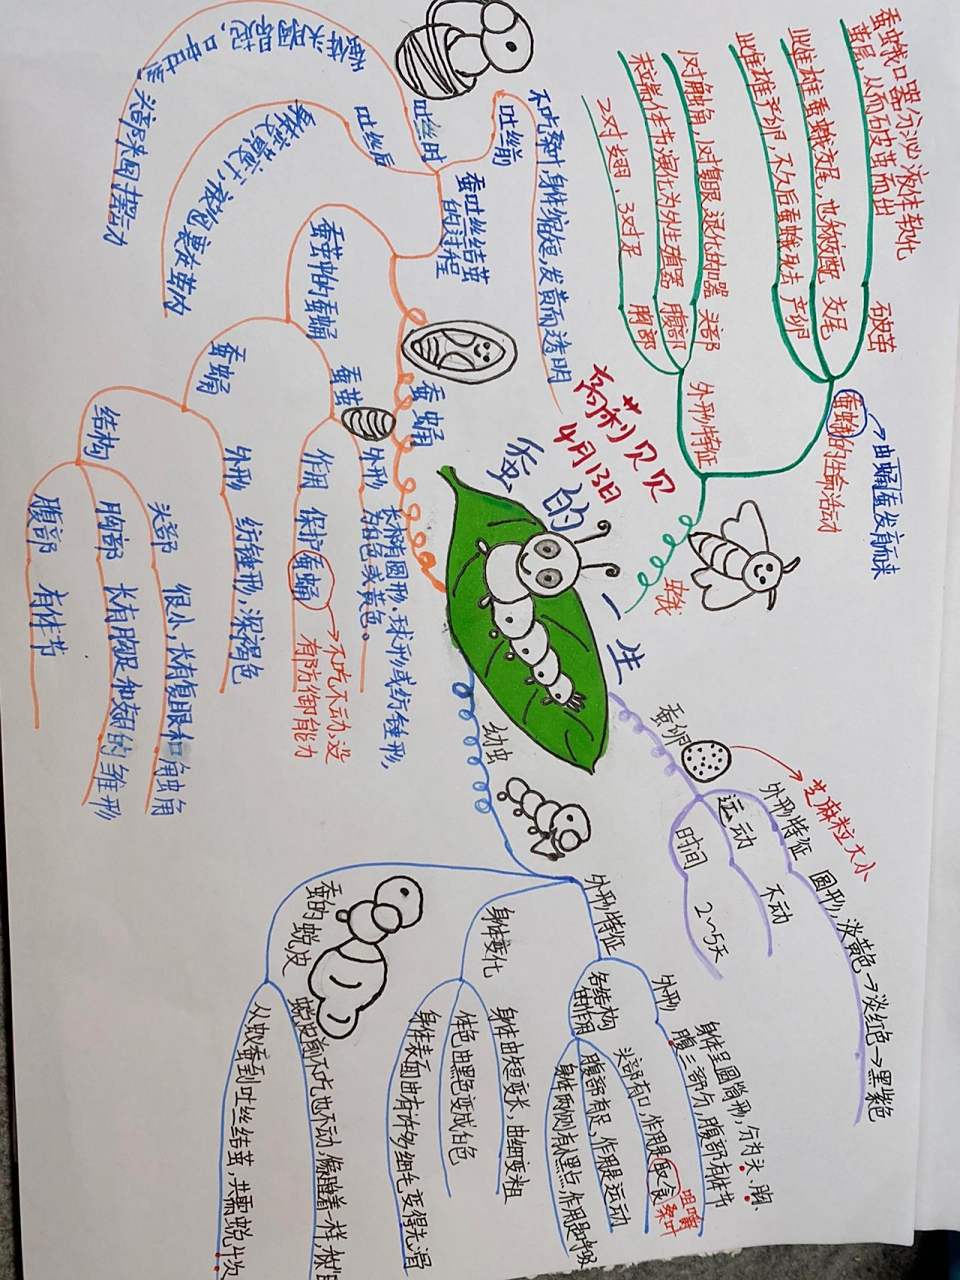 蚕的一生
高莉贝贝
4月13日
蚕卵
芝麻粒大小
外形特征
圆形，淡黄色→淡红色→黑紫色
运动
不动
时间
2~5天
幼虫
外形特征
外形
身体呈圆筒形，分为头、胸、
腹三部分，腹部有体节
各结构
的作用
头部有口，作用是取食
咀嚼
桑叶
腹部有足，作用是运动
身体两侧有黑点，作用是呼吸
身体变化
身体由短变长，由细变粗
体色由黑色变成白色
身体表面由有许多细毛变得光滑
蚕的蜕皮
蜕皮前不吃也不动，像睡着一样，被
从蚁蚕到吐丝结茧，共需蜕4次
蚕蛹
蚕茧
外形
椭圆形、球形或纺锤形，
为白色或黄色。
作用
保护蚕蛹
不吃不动，没
有防御能力
蚕茧中的蚕蛹
蚕蛹
外形
纺锤形，深褐色
结构
头部
很小，长有复眼和触角
胸部
长有胸足和翅的雏形
腹部
有体节
蚕吐丝结茧
的过程
吐丝前
不吃桑叶，身体缩短，发黄而透明
吐丝时
蚕体头胸昂起，口中吐丝
头部东西摆动
吐丝后
蚕茧内
蚕蛾
蚕蛹的生命活动
由蛹蜕发育而来
破茧
蚕蛾口器分泌液体软化
茧层，从而破茧而出
交尾
雌雄蚕蛾交尾，也称交配
产卵
雌蛾产卵，不久后蚕蛾死去
外形特征
头部
1对触角，1对复眼，退化的口器
腹部
末端体节演化为外生殖器
胸部
2对翅，3对足